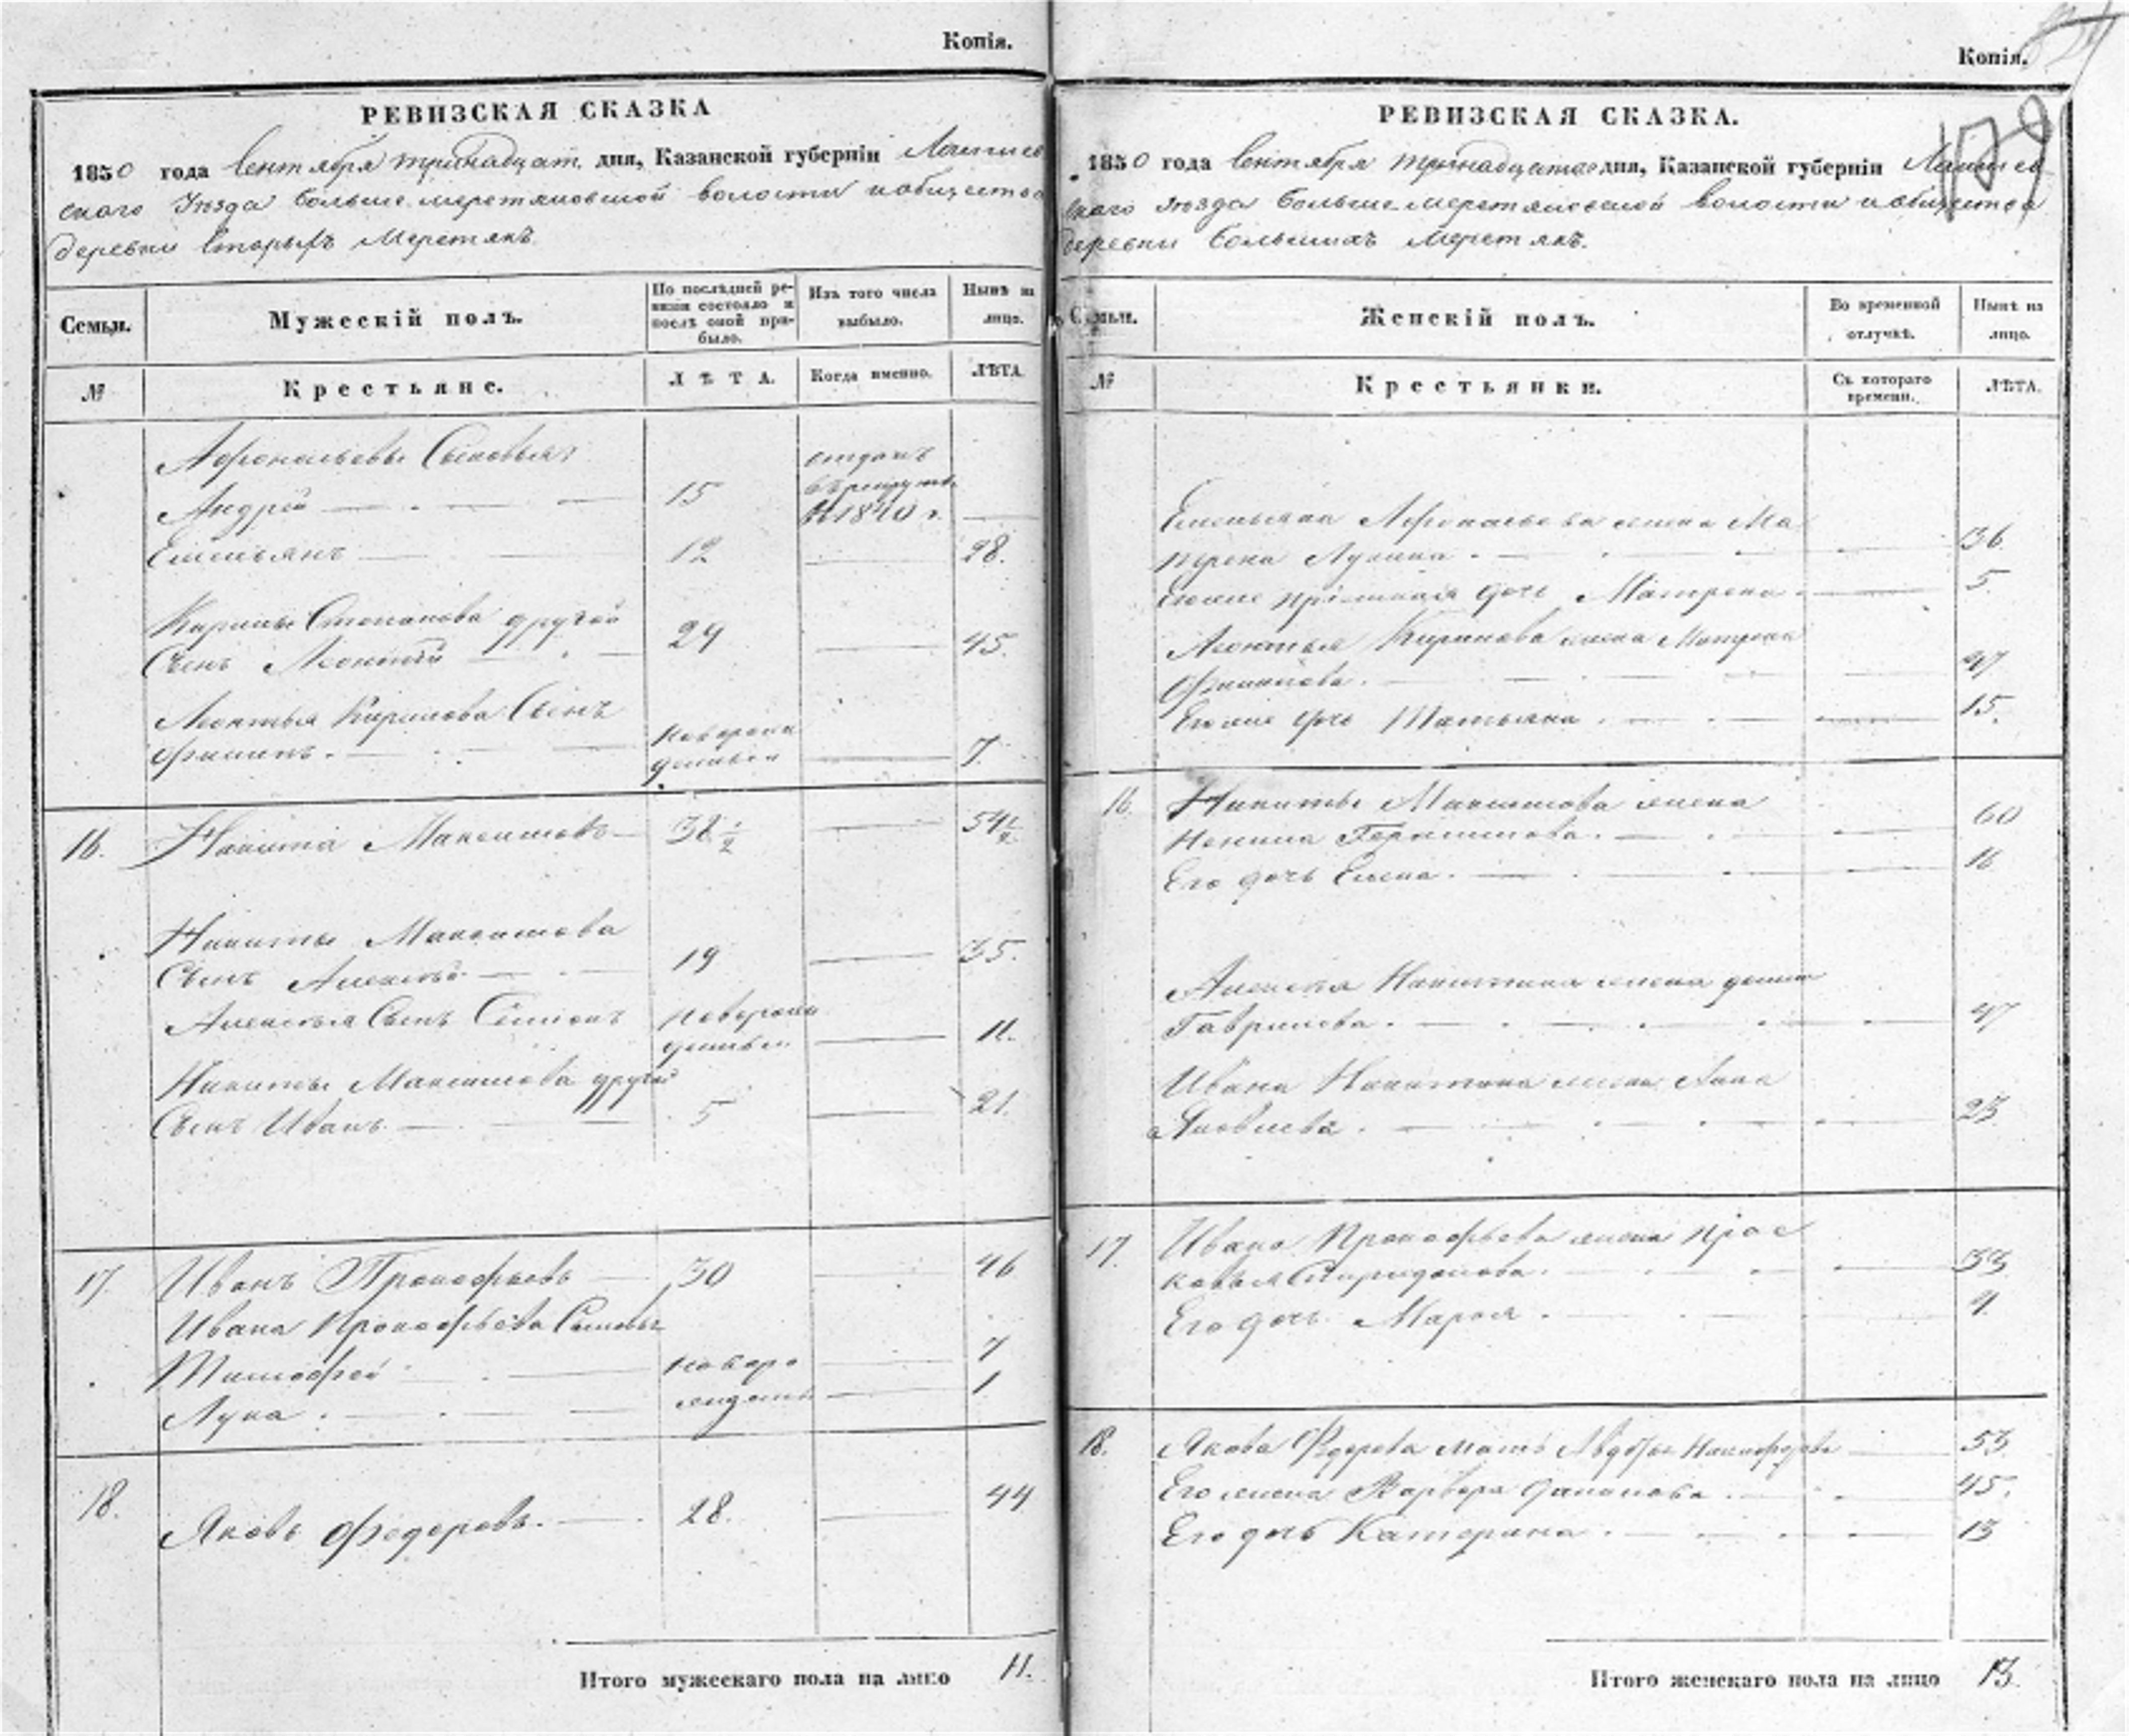 Копія.
РЕВИЗСКАЯ СКАЗКА
1850 года Сентября тринадцат. дня, Казанской губерніи Лаишев
скаго Уѣзда Больше меретяковской волости и общества
деревни Старыхъ Меретякъ
Семьи.
Мужескій полъ.
По послѣдней ре-
визіи состояло и
послѣ оной при-
было.
Изъ того числа
выбыло.
Нынѣ на
лицо.
№
Крестьяне.
ЛѢТА.
Когда именно.
ЛѢТА.
Афонасьевы Сыновья
Андрей 15 отданъ
въ рекруты
въ 1840 г.
Емельянъ 12 28.
Кирилы Степанова другой
Сынъ Леонтій 29 45.
Леонтья Кирилова Сынъ
Филипъ. новорож
денный 7.
16. Никита Максимовъ 38 1/2 54 1/2
Никиты Максимова
Сынъ Алексѣй 19 35.
Алексѣя Сынъ Семіонъ новорож
денный 11.
Никиты Максимова другой
Сынъ Иванъ 5 21.
17. Иванъ Прокофьевъ 30 46
Ивана Прокофьева Сыновья
Тимофей новоро 7
Лука. 1
18. Яковъ Федоровъ. 28. 44
Итого мужескаго пола на лицо 11.
Копія.
РЕВИЗСКАЯ СКАЗКА.
1850 года Сентября тринадцатаго дня, Казанской губерніи Лаишев
скаго Уѣзда Больше меретяковской волости и общества
деревни Большихъ Меретякъ.
Семьи.
Женскій полъ.
Во временной
отлучкѣ.
Нынѣ на
лицо.
№
Крестьянки.
Съ котораго
времени.
ЛѢТА.
Емельяна Афонасьева жена Ма
трена Лукина 36.
дочь Матрена 5.
Леонтья Кирилова жена Матрена
Филипова. 47
дочь Татьяна. 15.
16. Никиты Максимова жена
Ненила Герасимова. 60
Его дочь Елена. 16
Алексѣя Никитина жена
Гаврилова. 47
Ивана Никитина жена Анна
Яковлева. 23.
17. Ивана Прокофьева жена Прас
ковья Спиридонова. 33.
Его дочь Марья.
18. Якова Федорова мать Авдотья Никифорова 53.
Его жена Варвара Данилова 45.
Его дочь Катерина. 13
Итого женскаго пола на лицо 13.